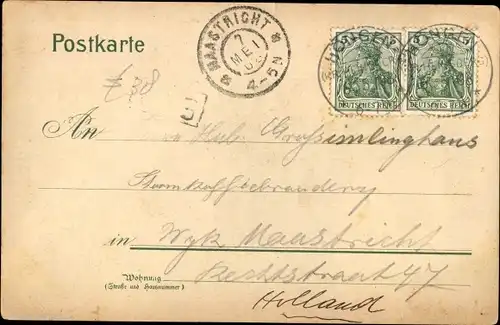 Postkarte
MAASTRICHT
7
MEI
4-5N
DEUTSCHES REICH DEUTSCHES REICH
An Hub. Grussimlinghaus
in Wyk Maastricht
Wohnung
(Straße und Hausnummer)
Rechtstraat 47
Holland